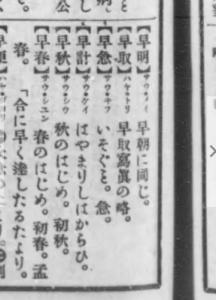 【早明】サウ・メイ 早朝に同じ。
【早取】ハヤ・トリ 早取寫眞の略。
【早急】サウ・キフ いそぐこと。急。
【早計】サウ・ケイ はやまりしはからひ。
【早秋】サウ・シウ 秋のはじめ。初秋。
【早春】サウ・シユン 春のはじめ。初春。孟
春。「合に早く達したるたより。